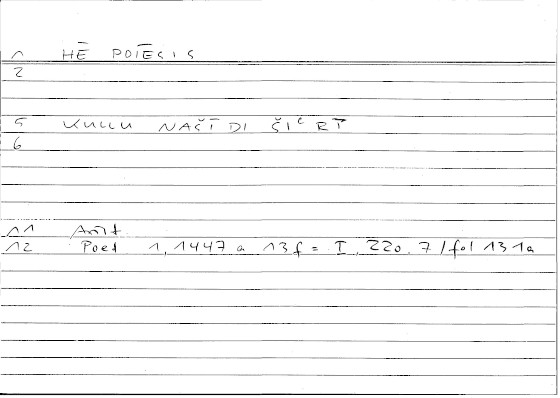 1 HĒ POIĒSIS
2
5 KULLU NAŠĪDI ŠIʿRĪ
6
11 Arist
12 Poet 1, 1447 a 13 f = I, 220, 7 / fol 131a